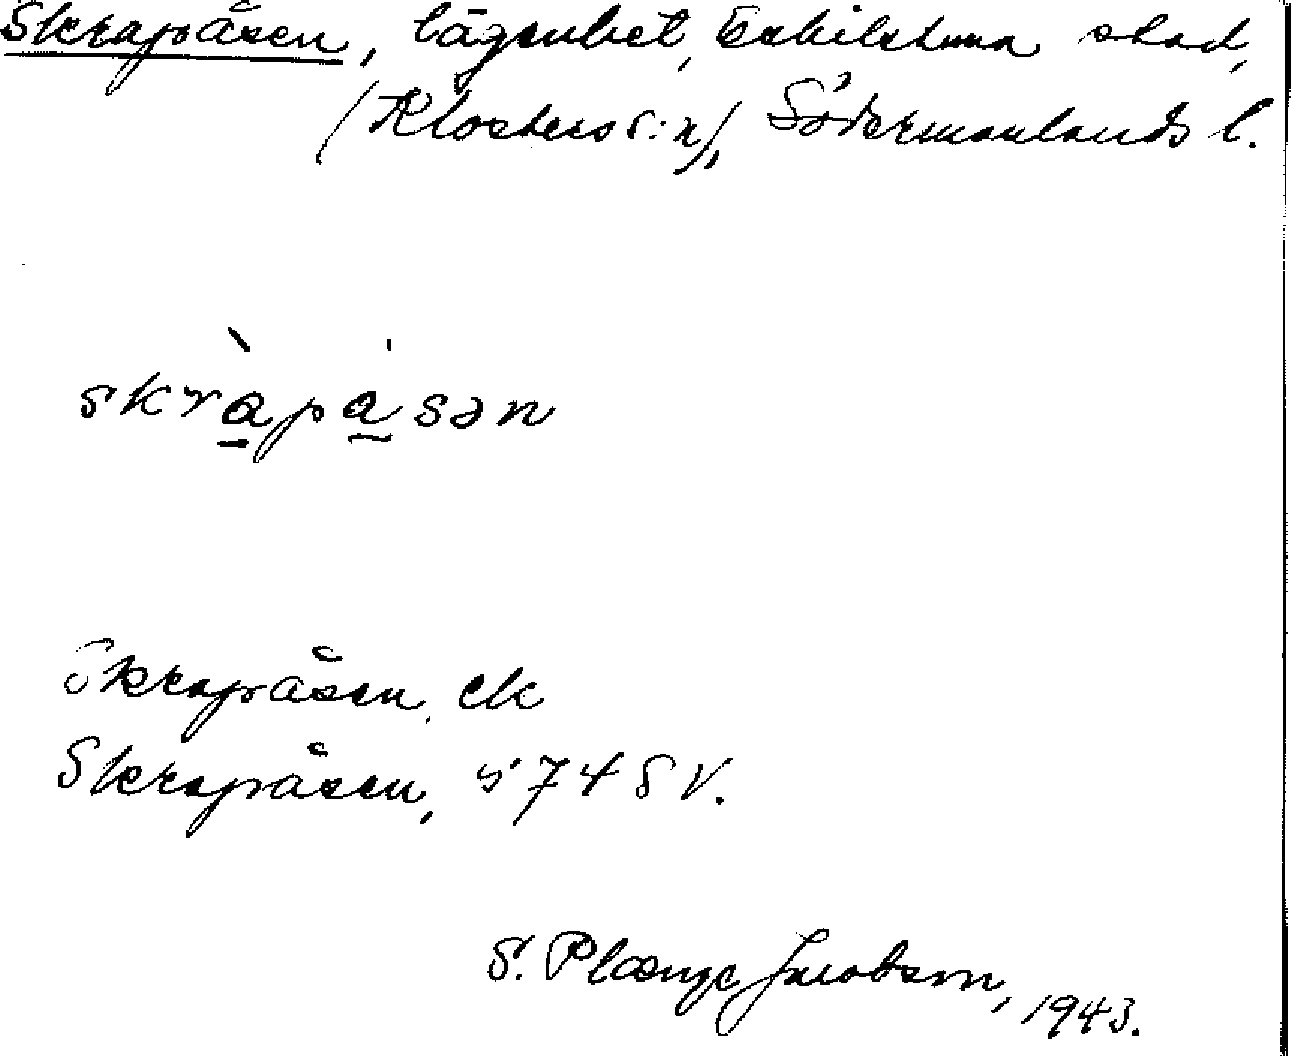 Skrapåsen, lägenhet, Eskilstuna stad,
(Klosters s:n), Södermanlands l.
skràpåsən
Skrapåsen, ek
Skrapåsen, 574 SV.
S. Plænge Jacobson, 1943.